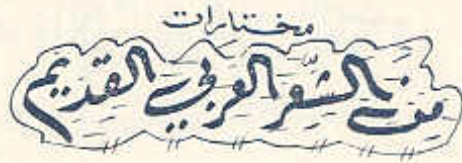 مختارات
من الشعر العربي القديم